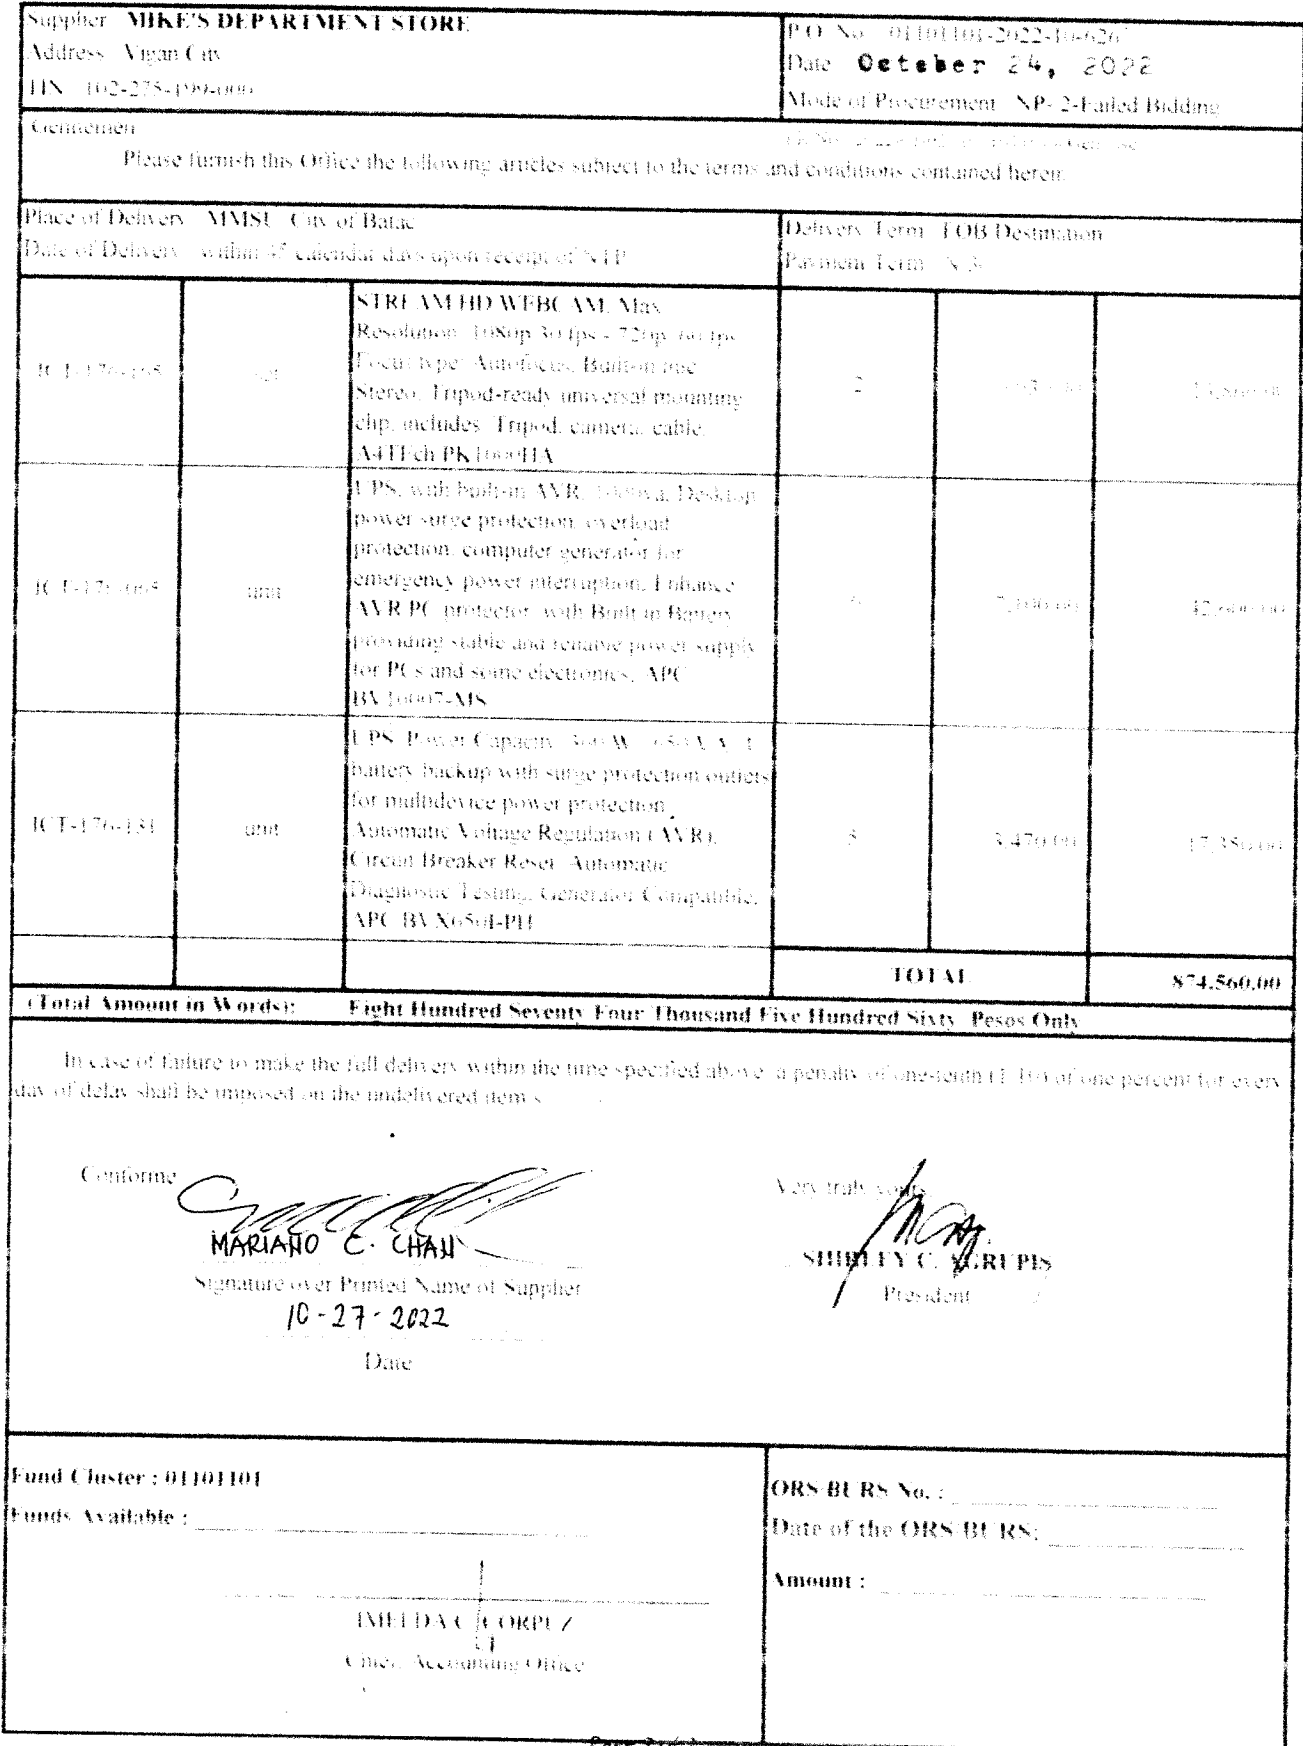 Supplier MIKE'S DEPARTMENT STORE
Address Vigan City
TIN 102-275-499-000
P.O. No. 01101101-2022-10-626
Date October 24, 2022
Mode of Procurement NP- 2-Failed Bidding
Gentlemen
Please furnish this Office the following articles subject to the terms and conditions contained herein
Place of Delivery MMSU City of Batac
Date of Delivery within 45 calendar days upon receipt of NTP
Delivery Term FOB Destination
Payment Term
STREAM HD WEBCAM, Max
Resolution 1080p 30 fps - 720p 60 fps
Focus type: Autofocus, Built-in mic
Stereo, Tripod-ready universal mounting
clip, includes Tripod, camera, cable,
A4TEch PK1000HA
ICT-176-165 set 2
UPS, with built-in AVR, Desktop
power surge protection, overload
protection, computer generator for
emergency power interruption, Enhance
AVR PC protector with Built in Battery
providing stable and reliable power supply
for PCs and some electronics, APC
ICT-176-065 unit 6 7,100.00 42,600.00
UPS, Power Capacity
battery backup with surge protection outlets
for multidevice power protection,
Automatic Voltage Regulation (AVR),
Circuit Breaker Reset, Automatic
Diagnostic Testing, Generator Compatible,
APC BVX650I-PH
ICT-176-131 unit 5 3,470.00 17,350.00
TOTAL 874,560.00
(Total Amount in Words): Eight Hundred Seventy Four Thousand Five Hundred Sixty Pesos Only
In case of failure to make the full delivery within the time specified above, a penalty of one-tenth (1/10) of one percent for every
day of delay shall be imposed on the undelivered item/s
Conforme
Very truly yours,
MARIANO C. CHAN
SHIRLEY C. AGRUPIS
Signature over Printed Name of Supplier
President
10-27-2022
Date
Fund Cluster : 01101101
Funds Available :
ORS/BURS No. :
Date of the ORS/BURS:
Amount :
IMELDA C. CORPUZ
Chief, Accounting Office